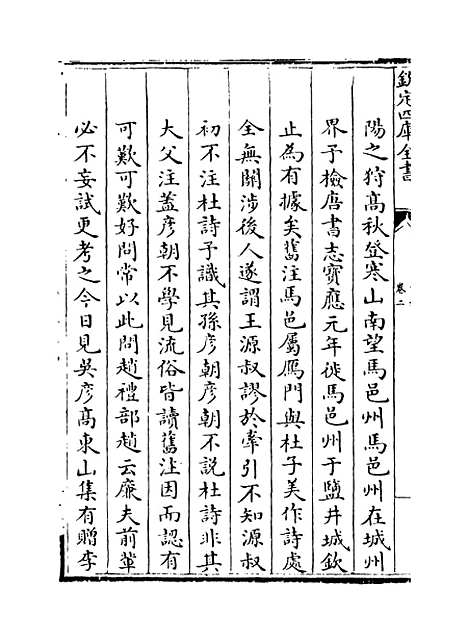 欽定四庫全書
卷二
陽之狩高秋登寒山南望馬邑州馬邑州在城州
界予檢唐書志寶應元年徙馬邑州于鹽井城欽
止為有據矣舊注馬邑屬鴈門與杜子美作詩處
全無關涉後人遂謂王源叔謬於牽引不知源叔
初不注杜詩予識其孫彦朝彦朝不説杜詩非其
大父注蓋彦朝不學見流俗皆讀舊注因而認有
可歎可歎好問常以此問趙禮部趙云廉夫前輩
必不妄試更考之今日見吳彦髙東山集有贈李